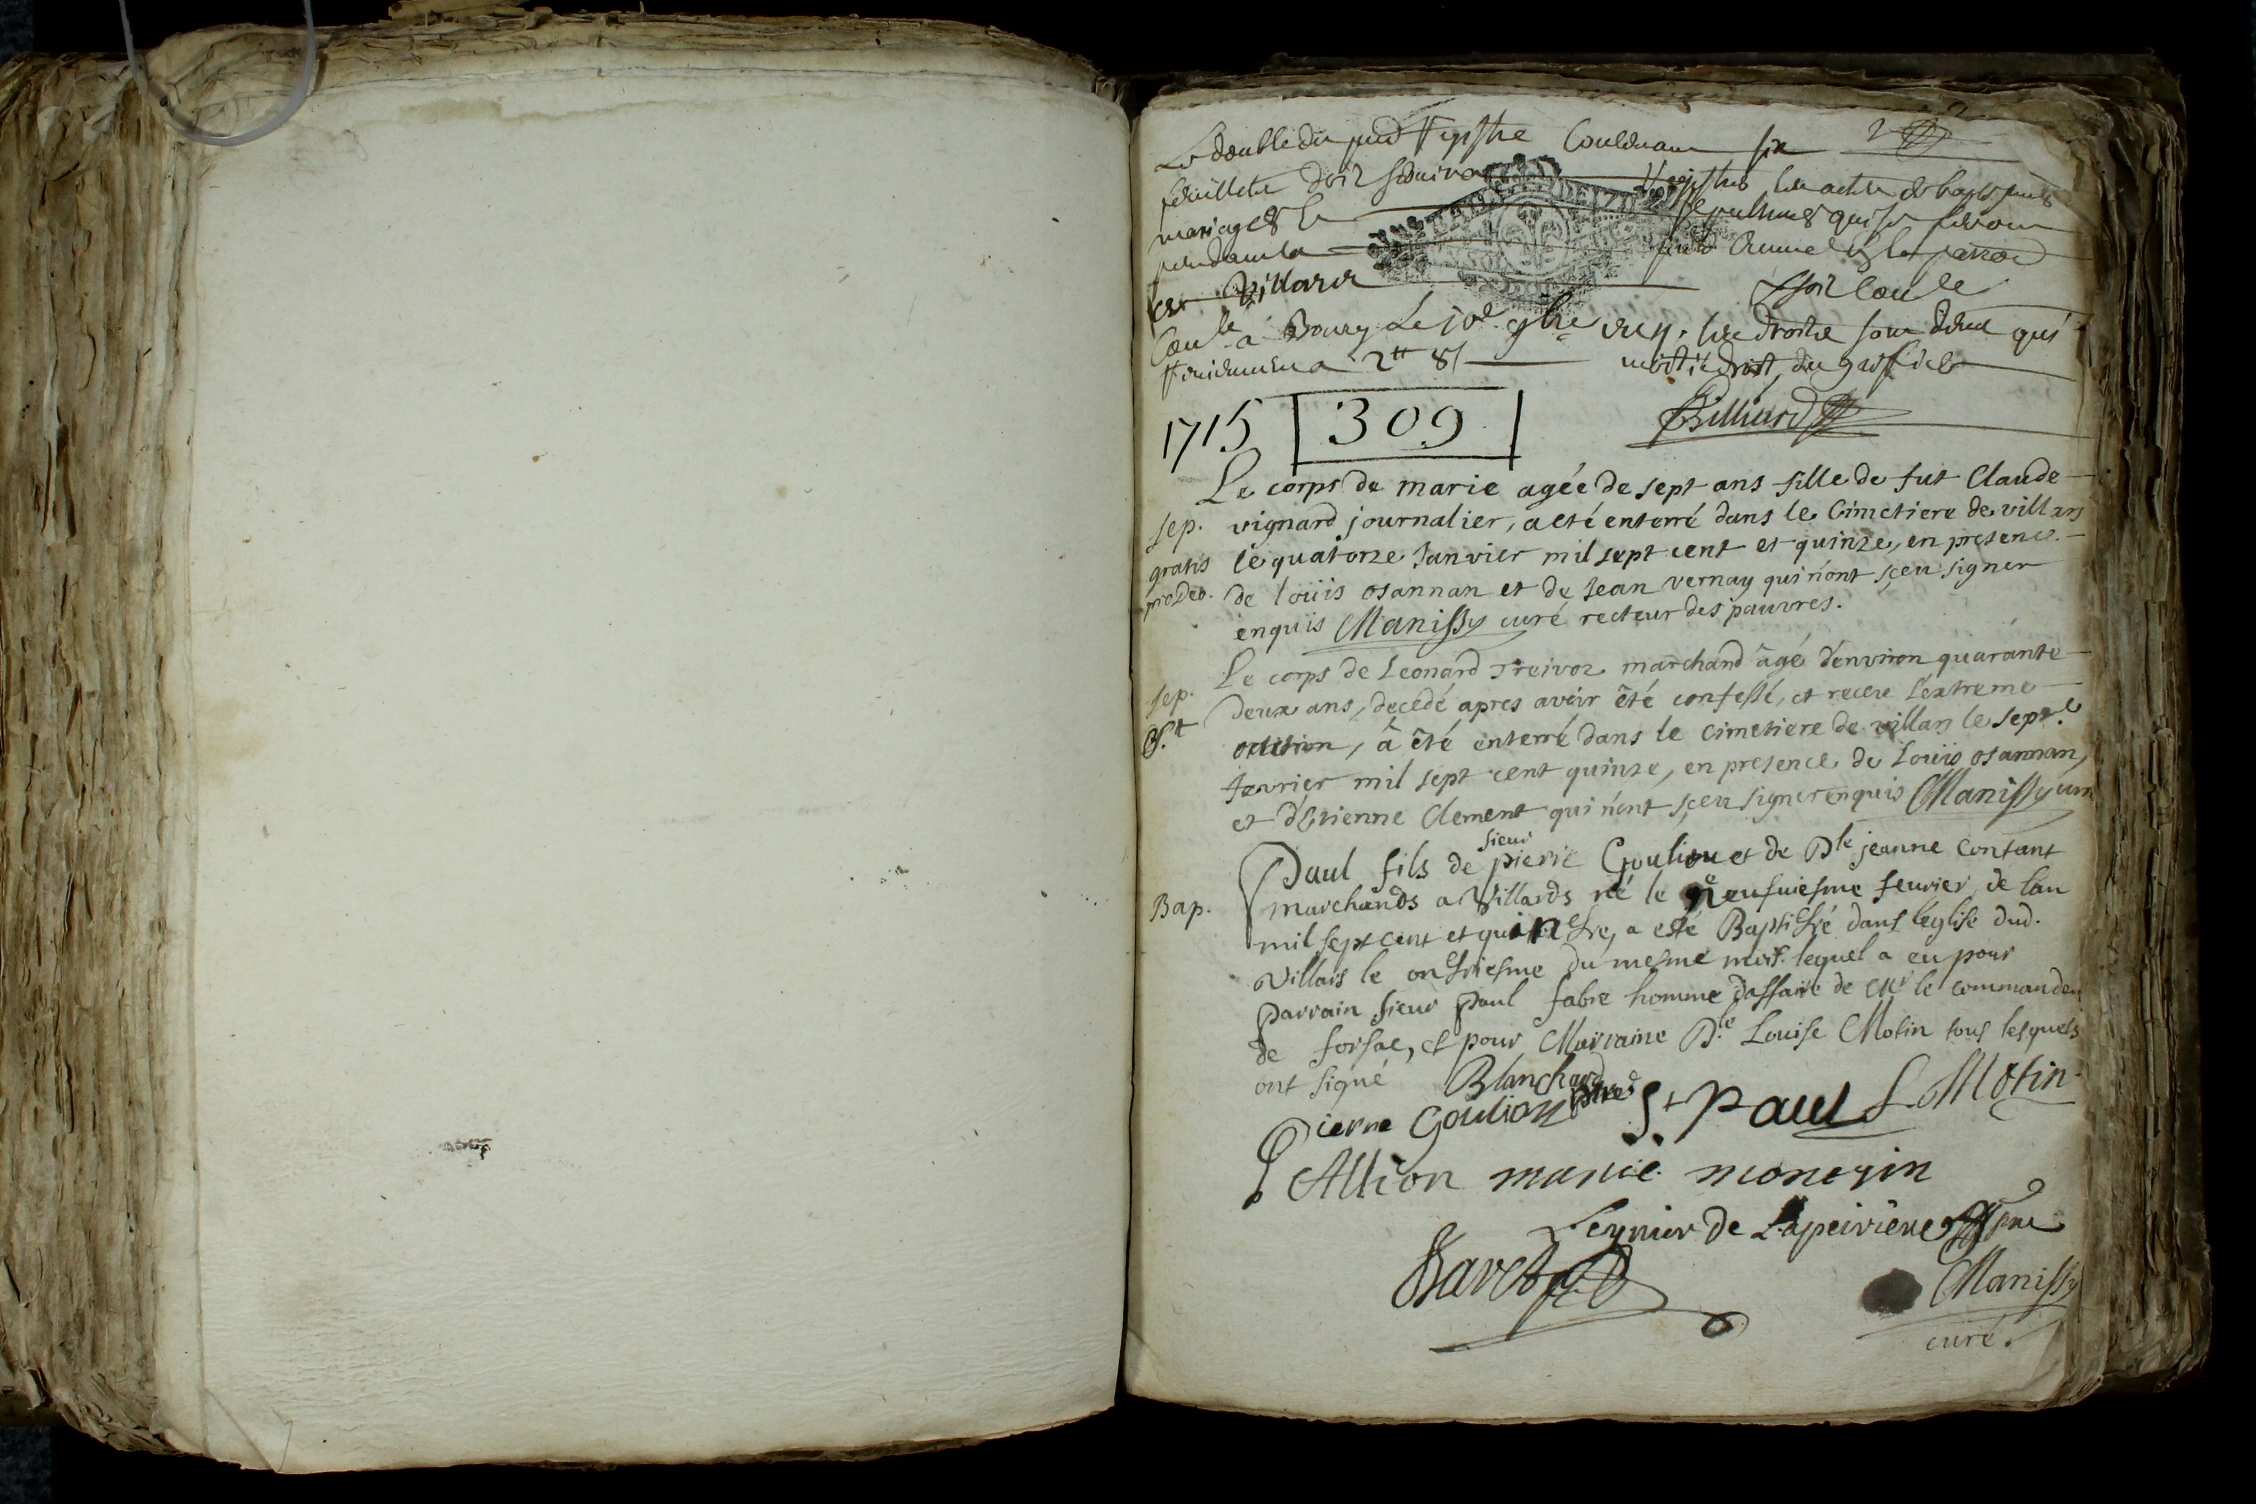 Le double du pnt Regstre Contenant six
feuillets doit servir Registre les actes de baptesmes
mariages et sepultures qui se feront
pendant la année de la parroisse
de Villars
à Bourg Le les droits sont deus qui
reviennent a 2tt 8s moitié droit du greffier
Billiard
1715 309
Le corps de marie agée de sept ans fille de fut Claude
sep. vignard journalier, a eté enterré dans le Cimetiere de villars
gratis le quatorze Janvier mil sept cent et quinze, en presence
pro Deo. de loüis osannan et de Jean vernay qui n'ont sçeu signer
enquis Manissy curé recteur des pauvres.
Le corps de Leonard Treivoz marchand âgé d'environ quarante
sep. deux ans, decedé apres avoir êté confessé, et receu l'extreme
onction, â êté enterré dans le cimetiere de villars le sept.e
fevrier mil sept cent quinze, en presence de Loüis osannan,
et d'Etienne Clement qui n'ont sçeu signer enquis Manissy curé
Paul fils de sieur pierre Goulion et de Dle jeanne Contant
Bap. marchands a Villards né le neufuiesme feurier de lan
mil sept cent et quinse, a esté Baptisé dans léglise dud.
Villars le onsiesme du mesme mois lequel a eu pour
Parrain sieur Paul fabre homme daffaire de Mr le commandeur
de forsac, et pour Marraine Dle Louise Motin tous lesquels
ont signé Blanchard ptre
Pierre Goulion St Paul L Motin
P Allion marie monegin
Leynier de Lapeiriere
Manissy
curé.